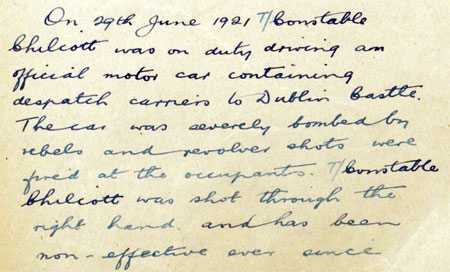 On 29th June 1921 T/Constable
Chilcott was on duty driving an
official motor car containing
despatch carriers to Dublin Castle.
The car was severely bombed by
rebels and revolver shots were
fired at the occupants. T/Constable
Chilcott was shot through the
right hand. and has been
non-effective ever since